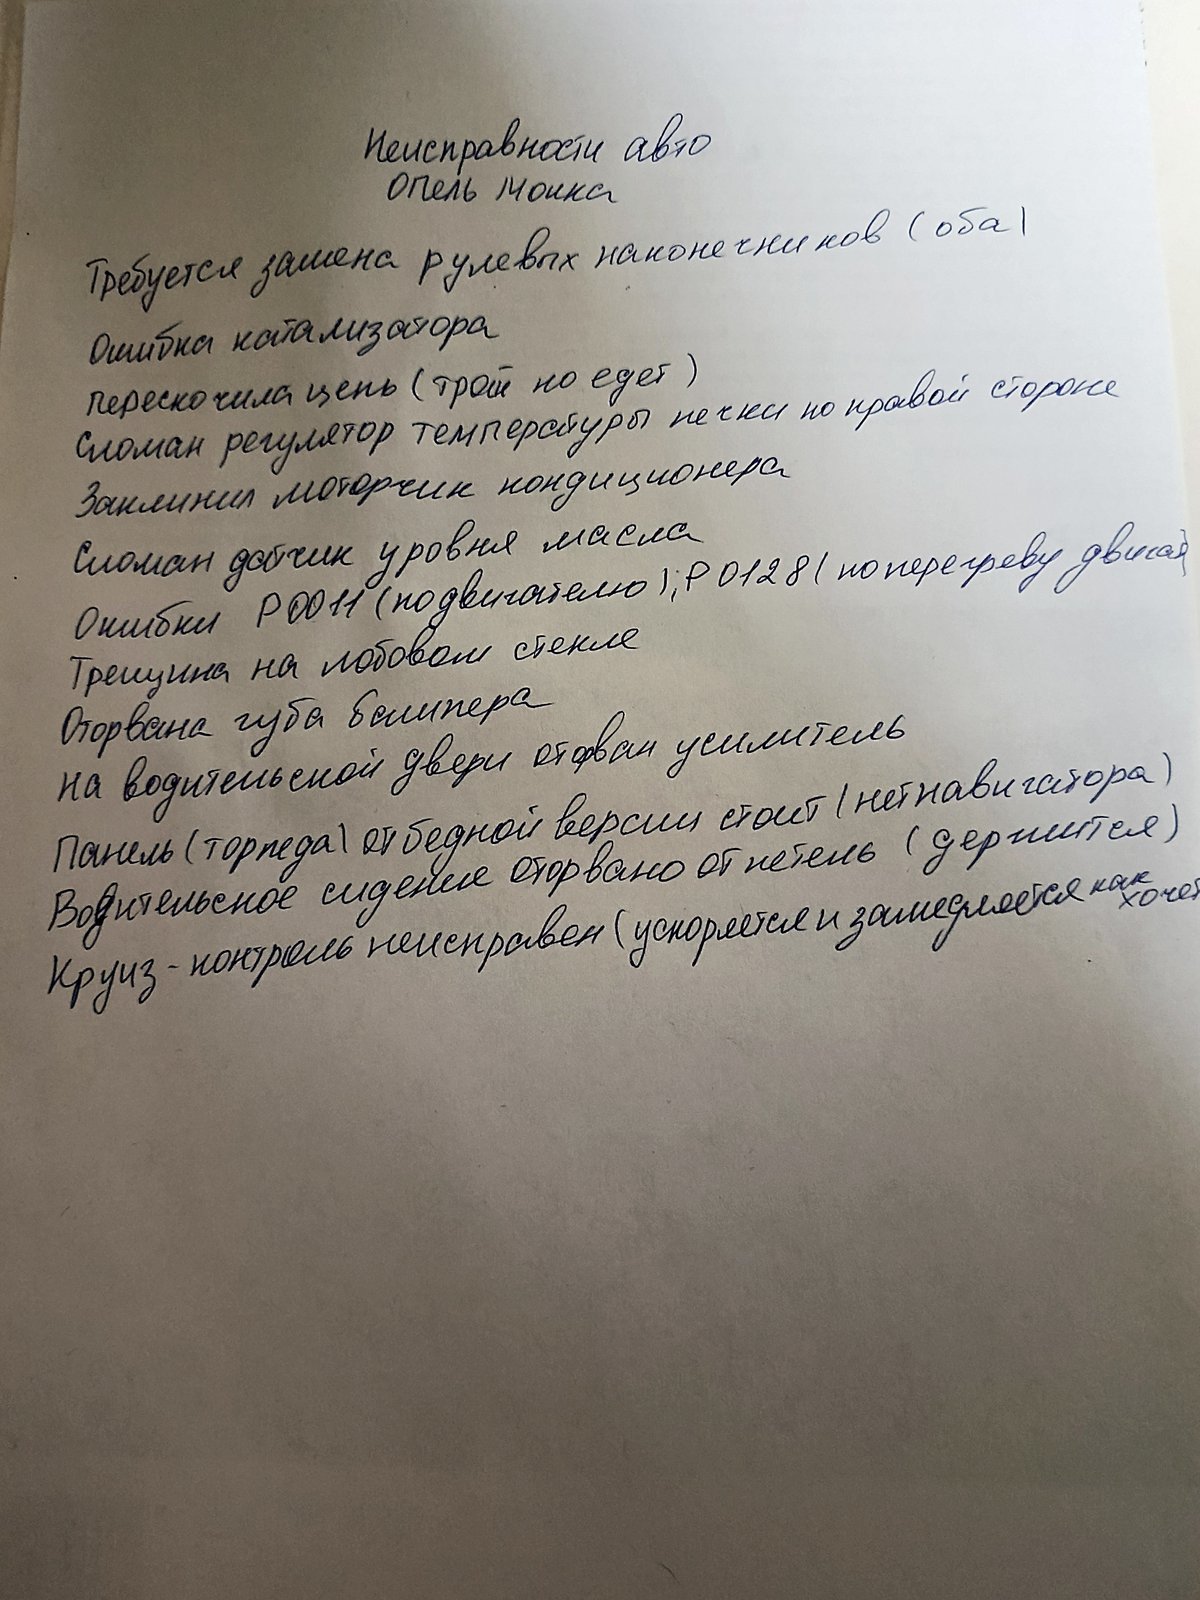 Неисправности авто
Опель Мокка
Требуется замена рулевых наконечников (оба)
Ошибка катализатора
перескочила цепь (троит но едет)
Сломан регулятор температуры печки по правой стороне
Заклинил моторчик кондиционера
Сломан датчик уровня масла
Ошибки Р0011 (по двигателю); Р0128 (по перегреву двигат)
Трещина на лобовом стекле
Оторвана губа бампера
На водительской двери оторван усилитель
Панель (торпеда) от бедной версии стоит (нет навигатора)
Водительское сидение оторвано от петель (держится)
Круиз-контроль неисправен (ускоряется и замедляется как хочет